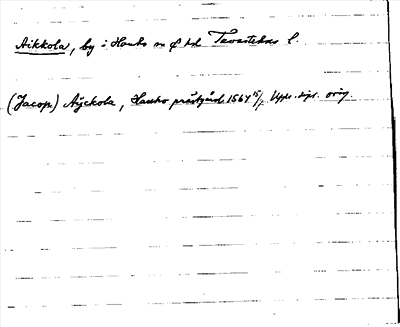 Aikkola, by i Hauho sn o hd Tavastehus l.
(Jacop) Äijckola, Hauho prästgård 1567 15/7 Upps. dipl. orig.